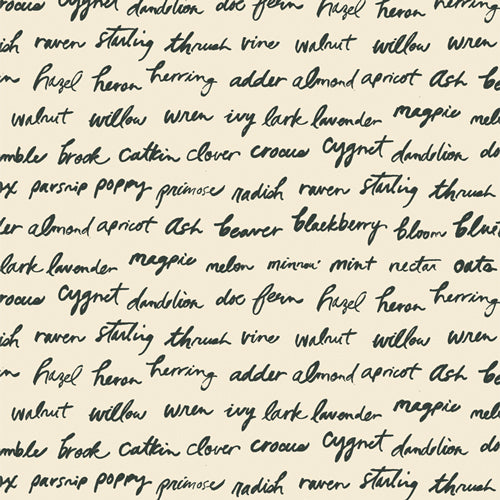 crocus cygnet dandelion doe fern hazel heron herring
raven starling thrush vine walnut willow wren
hazel heron herring adder almond apricot ash
walnut willow wren ivy lark lavender magpie
brook catkin clover crocus cygnet dandelion
parsnip poppy primrose radish raven starling thrush
almond apricot ash beaver blackberry bloom
lark lavender magpie melon minnow mint nectar oats
cygnet dandelion doe fern hazel heron herring
raven starling thrush vine walnut willow wren
hazel heron herring adder almond apricot ash
walnut willow wren ivy lark lavender magpie
brook catkin clover crocus cygnet dandelion
parsnip poppy primrose radish raven starling thrush